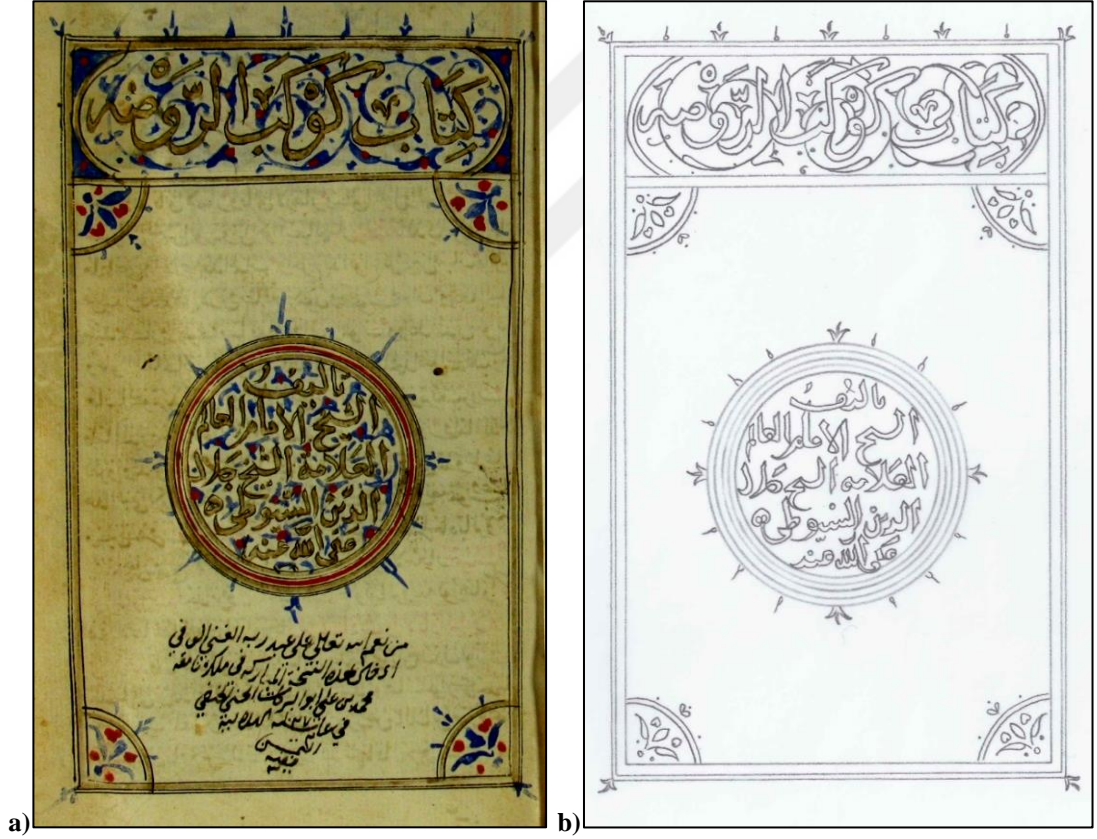 كِتَاب كَوْكَب الرَّوْضه
تاليف
الشيخ الامام العالم
العلامة الشيخ جلال
الدين السيوطى
عفى الله عنه
من نعم الله تعالى على عبد ربه الغني الوفي
هذه النسخة المباركة في ملكه
محمد بن علي ابو البركات
في
a)
كِتَاب كَوْكَب الرَّوْضه
تاليف
الشيخ الامام العالم
العلامه الشيخ جلال
الدين السيوطى
عفى الله عنه
b)